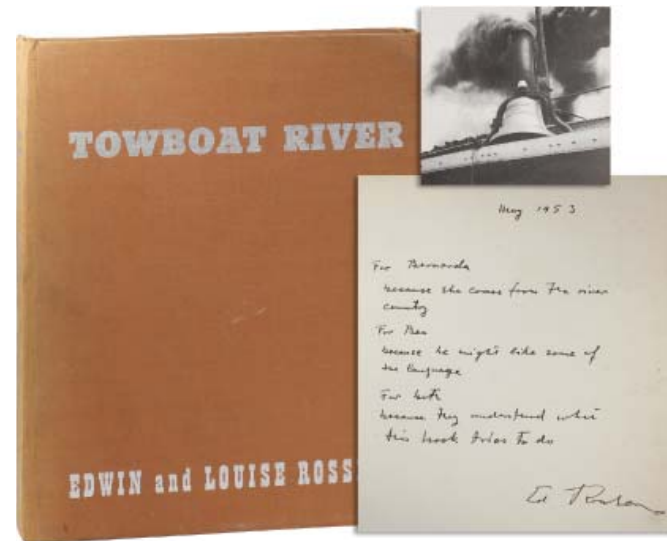 TOWBOAT RIVER
EDWIN and LOUISE ROSS
May 1953
For Bernarda
because she comes from the river
country
For Ben
because he might like some of
the language
For both
because they understand what
this book tries to do
Ed